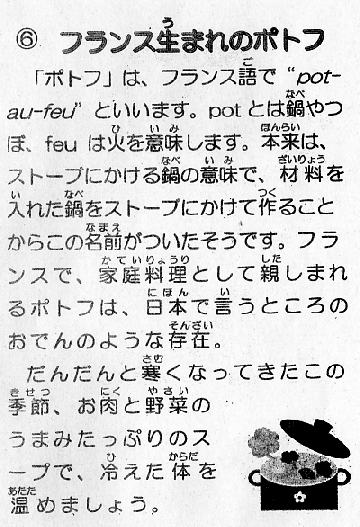 ⑥ フランス生まれのポトフ
「ポトフ」は、フランス語で“pot-
au-feu”といいます。potとは鍋やつ
ぼ、feuは火を意味します。本来は、
ストーブにかける鍋の意味で、材料を
入れた鍋をストーブにかけて作ること
からこの名前がついたそうです。フラ
ンスで、家庭料理として親しまれ
るポトフは、日本で言うところの
おでんのような存在。
だんだんと寒くなってきたこの
季節、お肉と野菜の
うまみたっぷりのス
ープで、冷えた体を
温めましょう。